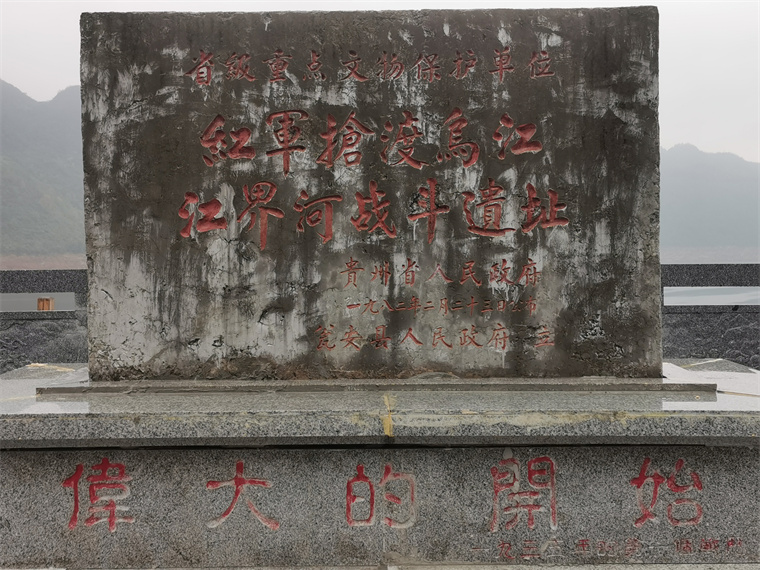 省级重点文物保护單位
红軍搶渡烏江
江界河战斗遺址
貴州省人民政府
一九八二年二月二十三日公布
瓮安县人民政府 立
偉大的開始
一九三